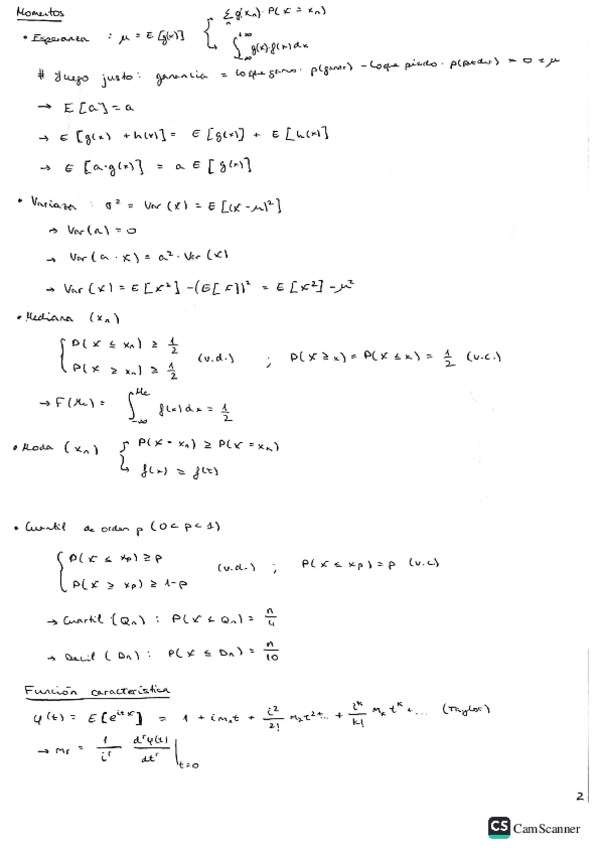 Momentos
• Esperanza : μ = E[g(x)] { Σₙ g(xₙ)·P(X = xₙ)
∫₋∞⁺∞ g(x)·f(x)dx
# Juego justo: ganancia = lo que gano · p(ganar) - lo que pierdo · p(perder) = 0 = μ
→ E[a] = a
→ E[g(x) + h(x)] = E[g(x)] + E[h(x)]
→ E[a·g(x)] = a E[g(x)]
• Varianza : σ² = Var(X) = E[(X-μ)²]
→ Var(a) = 0
→ Var(a · X) = a² · Var(X)
→ Var(X) = E[X²] - (E[X])² = E[X²] - μ²
• Mediana (xₙ)
{ P(X ≤ xₙ) ≥ 1/2
P(X ≥ xₙ) ≥ 1/2 (v.d.) ; P(X ≥ x) = P(X ≤ x) = 1/2 (v.c.)
→ F(Me) = ∫₋∞ᴹᵉ f(x)dx = 1/2
• Moda (xₙ) { P(X = xₙ) ≥ P(X = xₖ)
f(x) ≥ f(t)
• Cuantil de orden p (0 < p < 1)
{ P(X ≤ xp) ≥ p
P(X ≥ xp) ≥ 1-p (v.d.) ; P(X ≤ xp) = p (v.c)
→ Cuartil (Qₙ) : P(X ≤ Qₙ) = n/4
→ Decil (Dₙ) : P(X ≤ Dₙ) = n/10
Función característica
φ(t) = E[eⁱᵗˣ] = 1 + i m₁t + i²/2! m₂t² + ... + iᵏ/k! mₖ tᵏ + ... (Taylor)
→ mᵣ = 1/iʳ dʳφ(t)/dtʳ |t=0
2
CS CamScanner